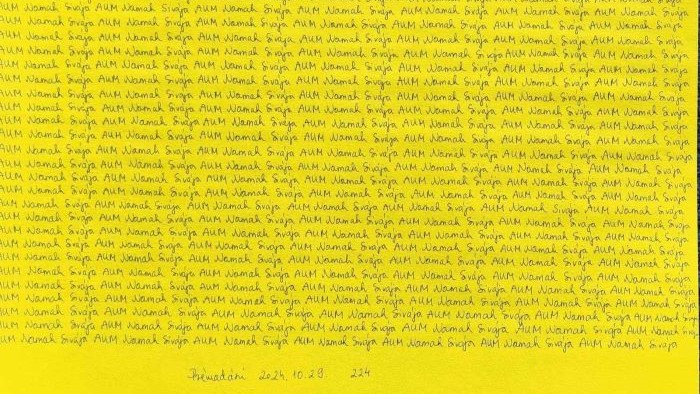 Namah Sivája AUM Namah Sivája AUM Namah Sivája AUM Namah Sivája AUM Namah Sivája AUM Namah Sivája AUM Namah Sivája
AUM Namah Sivája AUM Namah Sivája AUM Namah Sivája AUM Namah Sivája AUM Namah Sivája AUM Namah Sivája AUM Namah Sivája
AUM Namah Sivája AUM Namah Sivája AUM Namah Sivája AUM Namah Sivája AUM Namah Sivája AUM Namah Sivája AUM Namah Sivája
AUM Namah Sivája AUM Namah Sivája AUM Namah Sivája AUM Namah Sivája AUM Namah Sivája AUM Namah Sivája AUM Namah Sivája
AUM Namah Sivája AUM Namah Sivája AUM Namah Sivája AUM Namah Sivája AUM Namah Sivája AUM Namah Sivája AUM Namah Sivája
AUM Namah Sivája AUM Namah Sivája AUM Namah Sivája AUM Namah Sivája AUM Namah Sivája AUM Namah Sivája AUM Namah Sivája
AUM Namah Sivája AUM Namah Sivája AUM Namah Sivája AUM Namah Sivája AUM Namah Sivája AUM Namah Sivája AUM Namah Sivája
AUM Namah Sivája AUM Namah Sivája AUM Namah Sivája AUM Namah Sivája AUM Namah Sivája AUM Namah Sivája AUM Namah Sivája
AUM Namah Sivája AUM Namah Sivája AUM Namah Sivája AUM Namah Sivája AUM Namah Sivája AUM Namah Sivája AUM Namah Sivája
AUM Namah Sivája AUM Namah Sivája AUM Namah Sivája AUM Namah Sivája AUM Namah Sivája AUM Namah Sivája AUM Namah Sivája
AUM Namah Sivája AUM Namah Sivája AUM Namah Sivája AUM Namah Sivája AUM Namah Sivája AUM Namah Sivája AUM Namah Sivája
AUM Namah Sivája AUM Namah Sivája AUM Namah Sivája AUM Namah Sivája AUM Namah Sivája AUM Namah Sivája AUM Namah Sivája
AUM Namah Sivája AUM Namah Sivája AUM Namah Sivája AUM Namah Sivája AUM Namah Sivája AUM Namah Sivája AUM Namah Sivája
AUM Namah Sivája AUM Namah Sivája AUM Namah Sivája AUM Namah Sivája AUM Namah Sivája AUM Namah Sivája AUM Namah Sivája
AUM Namah Sivája AUM Namah Sivája AUM Namah Sivája AUM Namah Sivája AUM Namah Sivája AUM Namah Sivája AUM Namah Sivája
AUM Namah Sivája AUM Namah Sivája AUM Namah Sivája AUM Namah Sivája AUM Namah Sivája AUM Namah Sivája AUM Namah Sivája
AUM Namah Sivája AUM Namah Sivája AUM Namah Sivája AUM Namah Sivája AUM Namah Sivája AUM Namah Sivája AUM Namah Sivája
AUM Namah Sivája AUM Namah Sivája AUM Namah Sivája AUM Namah Sivája AUM Namah Sivája AUM Namah Sivája AUM Namah Sivája
AUM Namah Sivája AUM Namah Sivája AUM Namah Sivája AUM Namah Sivája AUM Namah Sivája AUM Namah Sivája AUM Namah Sivája
AUM Namah Sivája AUM Namah Sivája AUM Namah Sivája AUM Namah Sivája AUM Namah Sivája AUM Namah Sivája AUM Namah Sivája
AUM Namah Sivája AUM Namah Sivája AUM Namah Sivája AUM Namah Sivája AUM Namah Sivája AUM Namah Sivája AUM Namah Sivája
AUM Namah Sivája AUM Namah Sivája AUM Namah Sivája AUM Namah Sivája AUM Namah Sivája AUM Namah Sivája AUM Namah Sivája
AUM Namah Sivája AUM Namah Sivája AUM Namah Sivája AUM Namah Sivája AUM Namah Sivája AUM Namah Sivája AUM Namah Sivája
AUM Namah Sivája AUM Namah Sivája AUM Namah Sivája AUM Namah Sivája AUM Namah Sivája AUM Namah Sivája AUM Namah Sivája
AUM Namah Sivája AUM Namah Sivája AUM Namah Sivája AUM Namah Sivája AUM Namah Sivája AUM Namah Sivája AUM Namah Sivája
Prémadání 2024.10.29. 224